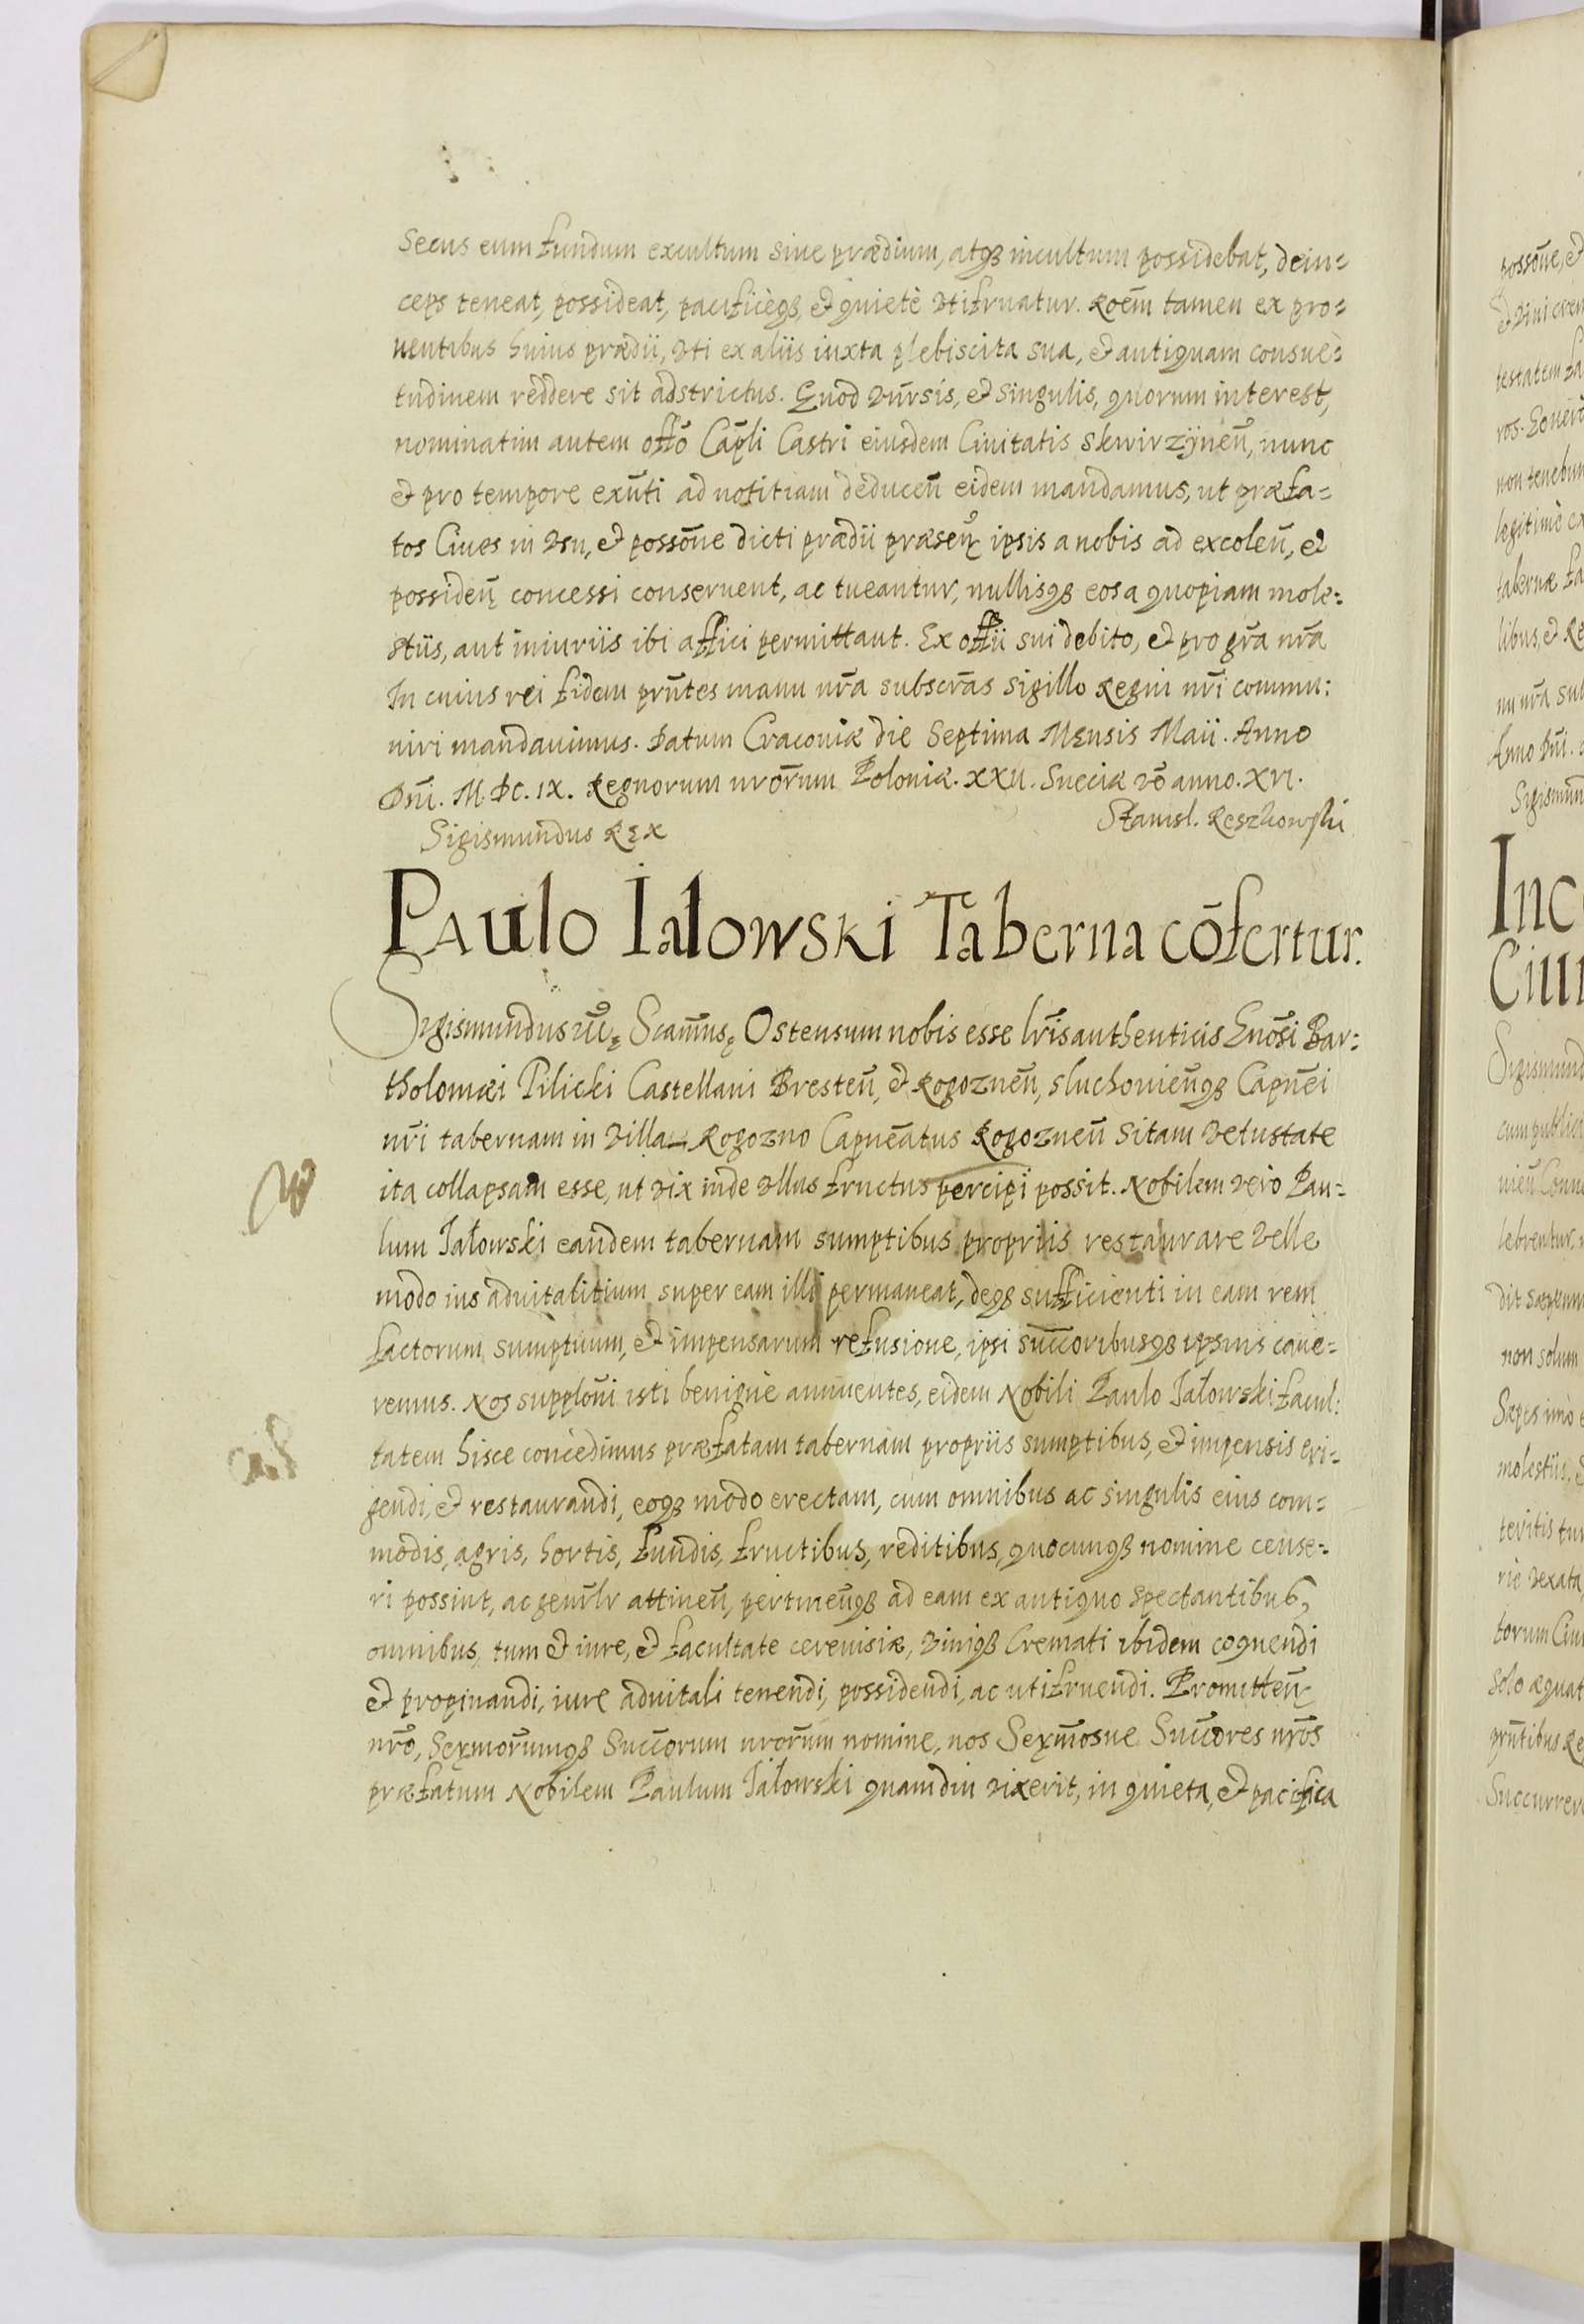 Secus eum fundum excultum sive prædium, atqȝ incultum possidebat, dein=
ceps teneat, possideat, pacificèqȝ, et quietè utifruatur. Roēm tamen ex pro=
ventibus huius prædii, uti ex aliis iuxta plebiscita sua, et antiquam consue=
tudinem reddere sit adstrictus. Quod vūrsis, et singulis, quorum interest,
nominatim autem offō Cāpli Castri eiusdem Civitatis Skwirzÿneñ, nunc
et pro tempore exñti ad notitiam deduceñ eidem mandamus, ut præfa=
tos Cives in usu, et possōne dicti prædii præseñ ipsis a nobis ad excoleñ, et
possideñ concessi conservent, ac tueantur, nullisqȝ eos a quopiam mole=
stiis, aut iniuriis ibi affici permittant. Ex offii sui debito, et pro grā nrā
In cuius rei fidem prñtes manu nrā subscrās sigillo Regni nrī commu:
niri mandavimus. Datum Cracoviæ die Septima Mensis Maii. Anno
Dñi. M.DC.IX. Regnorum nrōrum Poloniæ. XXII. Sueciæ vō anno. XVI.
Sigismundus Rex
Stanisl. Reszkowski
Paulo Iałowski Taberna cōfertur.
Sigismundus Scamūs Ostensum nobis esse lrīs authenticis Gnōsi Bar:
tholomæi Pilicki Castellani Bresteñ, et Rogozneñ, Sluchovieñqȝ Capnēi
nrī tabernam in villa Rogozno Capnēatus Rogozneñ sitam vetustate
ita collapsam esse, ut vix inde ullus fructus percipi possit. Nobilem vero Pau=
lum Iałowski eandem tabernam sumptibus propriis restaurare velle
modo ius advitalitium super eam illi permaneat, deqȝ sufficienti in eam rem
factorum sumptuum, et impensarum refusione, ipsi succoribusqȝ ipsius cave=
remus. Nos supplōni isti benignè annuentes, eidem Nobili Paulo Iałowski facul:
tatem hisce concedimus præfatam tabernam propriis sumptibus, et impensis eri=
gendi, et restaurandi, eoqȝ modo erectam, cum omnibus ac singulis eius com=
modis, agris, hortis, fundis, fructibus, reditibus, quocunqȝ nomine cense=
ri possint, ac genr̄lr attineñ, pertineñqȝ ad eam ex antiquo spectantibus,
omnibus, tum et iure, et facultate cerevisiæ, vinīqȝ Cremati ibidem coquendi
et propinandi, iure advitali tenendi, possidendi, ac utifruendi. Promitteñ
nrō, Serm̄orūmqȝ Succōrum nrōrum nomine, nos Serm̄osve Succōres nrōs
præfatum Nobilem Paulum Iałowski quamdiu vixerit, in quieta, et pacifica